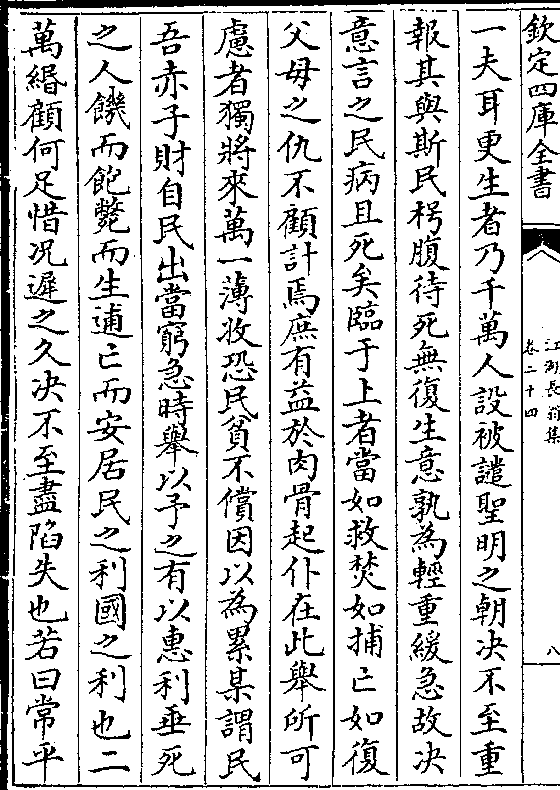 欽定四庫全書
江湖長翁集
卷二十四
八
一夫耳更生者乃千萬人設被譴聖明之朝决不至重
報其與斯民枵腹待死無復生意孰為輕重緩急故决
意言之民病且死矣臨于上者當如救焚如捕亡如復
父母之仇不顧計焉庶有益於肉骨起仆在此舉所可
慮者獨將來萬一薄收恐民貧不償因以為累某謂民
吾赤子財自民出當窮急時舉以予之有以惠利垂死
之人饑而飽斃而生逋亡而安居民之利國之利也二
萬緡顧何足惜况遲之久决不至盡陷失也若曰常平